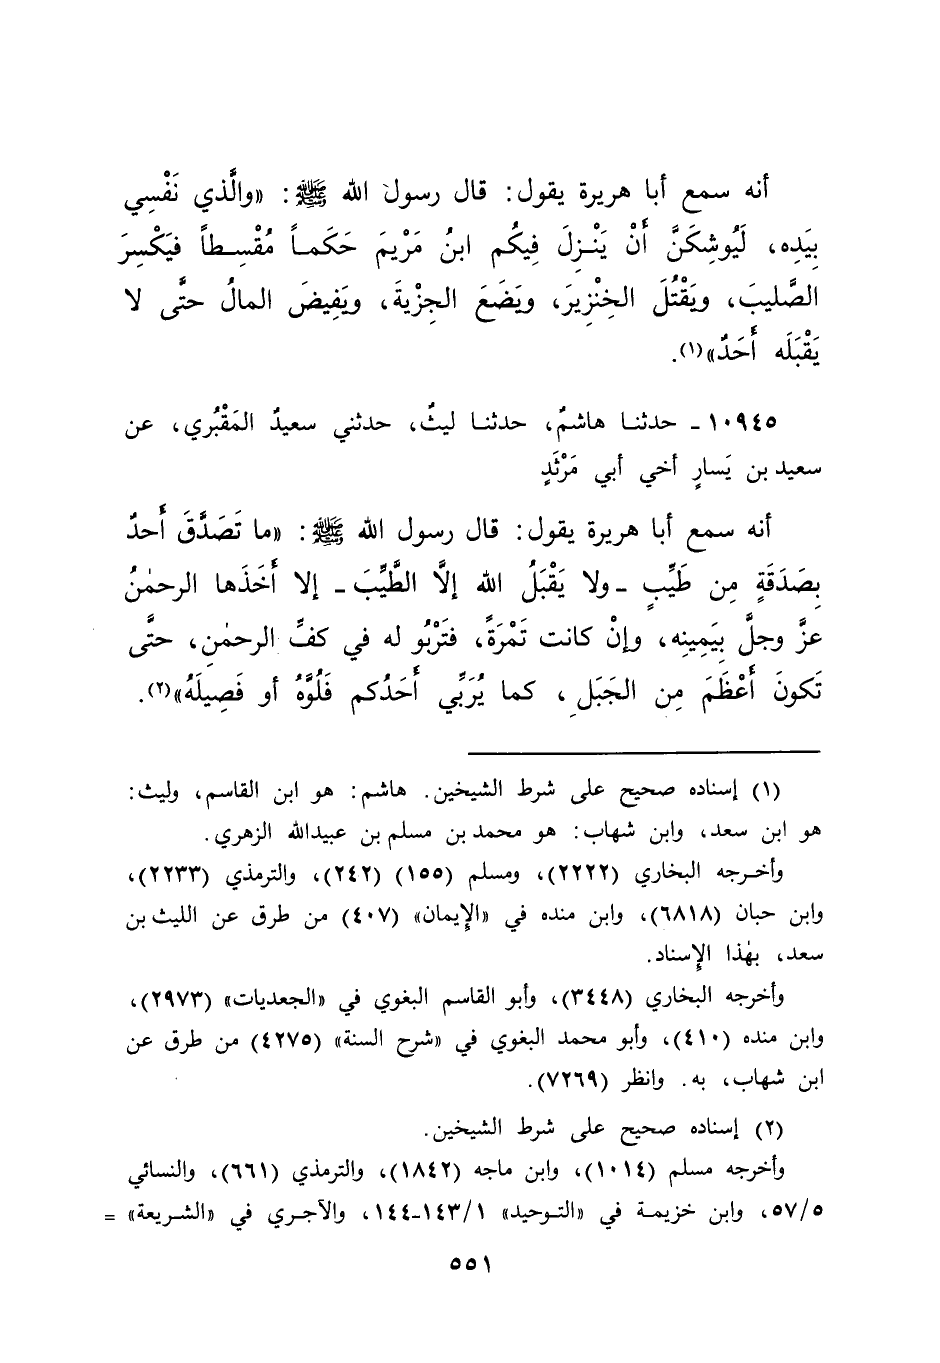 أنه سمع أبا هريرة يقول: قال رسول الله ﷺ: «والَّذي نَفْسِي
بِيَدِه، لَيُوشِكَنَّ أَنْ يَنْـزِلَ فِيكُم ابنُ مَرْيمَ حَكَمـاً مُقْسِـطاً فيَكْسِرَ
الصَّليبَ، ويَقْتُلَ الخِنْزِيرَ، ويَضَعَ الجِزْيةَ، ويَفِيضَ المالُ حتَّى لا
يَقْبَلَه أَحَدٌ»(١).
١٠٩٤٥ - حدثنـا هاشمٌ، حدثنـا ليثٌ، حدثني سعيدٌ المَقْبُري، عن
سعيد بن يَسارٍ أخي أبي مَرْثَدٍ
أنه سمع أبا هريرة يقول: قال رسول الله ﷺ: «ما تَصَدَّقَ أَحدٌ
بِصَدَقَةٍ مِن طَيِّبٍ - ولا يَقْبَلُ الله إلَّا الطَّيِّبَ - إلا أَخَذَها الرحمٰنُ
عزَّ وجلَّ بِيَمِينِه، وإنْ كانت تَمْرَةً، فتَرْبُو له في كفِّ الرحمٰن، حتَّى
تَكونَ أَعْظَمَ مِن الجَبَلِ، كما يُرَبِّي أَحَدُكم فَلُوَّهُ أو فَصِيلَهُ»(٢).
(١) إسناده صحيح على شرط الشيخين. هاشم: هو ابن القاسم، وليث:
هو ابن سعد، وابن شهاب: هو محمد بن مسلم بن عبيدالله الزهري.
وأخـرجه البخاري (٢٢٢٢)، ومسلم (١٥٥) (٢٤٢)، والترمذي (٢٢٣٣)،
وابن حبان (٦٨١٨)، وابن منده في «الإيمان» (٤٠٧) من طرق عن الليث بن
سعد، بهٰذا الإسناد.
وأخرجه البخاري (٣٤٤٨)، وأبو القاسم البغوي في «الجعديات» (٢٩٧٣)،
وابن منده (٤١٠)، وأبو محمد البغوي في «شرح السنة» (٤٢٧٥) من طرق عن
ابن شهاب، به. وانظر (٧٢٦٩).
(٢) إسناده صحيح على شرط الشيخين.
وأخرجه مسلم (١٠١٤)، وابن ماجه (١٨٤٢)، والترمذي (٦٦١)، والنسائي
٥٧/٥، وابن خزيمـة في «التـوحيد» ١٤٣/١-١٤٤، والآجـري في «الشـريعة» =
٥٥١